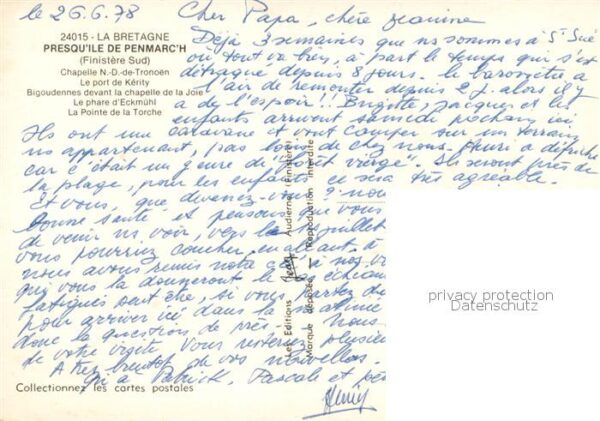 le 26.6.78
Cher Papa, chère Jeanine
24015 - LA BRETAGNE
PRESQU'ILE DE PENMARC'H
(Finistère Sud)
Chapelle N.-D.-de-Tronoën
Le port de Kérity
Bigoudennes devant la chapelle de la Joie
Le phare d'Eckmühl
La Pointe de la Torche
Déjà 3 semaines que ns sommes à St Gué
où tout va bien, à part le temps qui s'est
détraqué depuis 8 jours. le baromètre a
l'air de remonter depuis 2 j. alors il y
a de l'espoir!! Brigitte, Jacques et les
enfants arrivent samedi prochain ici
Ils ont une caravane et vont camper sur un terrain
ns appartenant, pas loin de chez nous. Henri a défriché
car c'était un genre de "forêt vierge". Ils seront près de
la plage, pour les enfants ce sera très agréable.
Et vous, que devenez-vous? nous
bonne santé et pensons que vous
de venir ns voir, vers le juillet
vous pourriez coucher, en allant, à
nous avons remis notre nos
qui vous la donneront le échéan
fatigués peut être, si vous partez de
pour arriver ici dans la
donc la question de près. Nous
de votre visite. Vous resterez plusieu
A très bientôt de vos nouvelles.
Patrick, Pascale et
Henri
Les Editions Jean Audierne (Finistère)
Marque déposée - Reproduction interdite
privacy protection
Datenschutz
Collectionnez les cartes postales